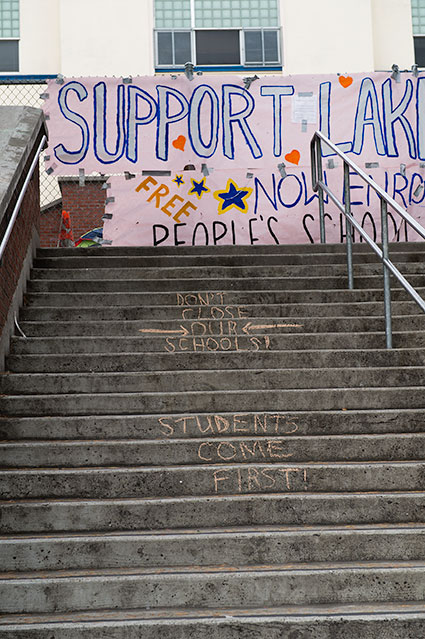 SUPPORT LAKE
FREE
NOW ENRO
PEOPLE'S SCHOO
DON'T
CLOSE
OUR
SCHOOLS!
STUDENTS
COME
FIRST!